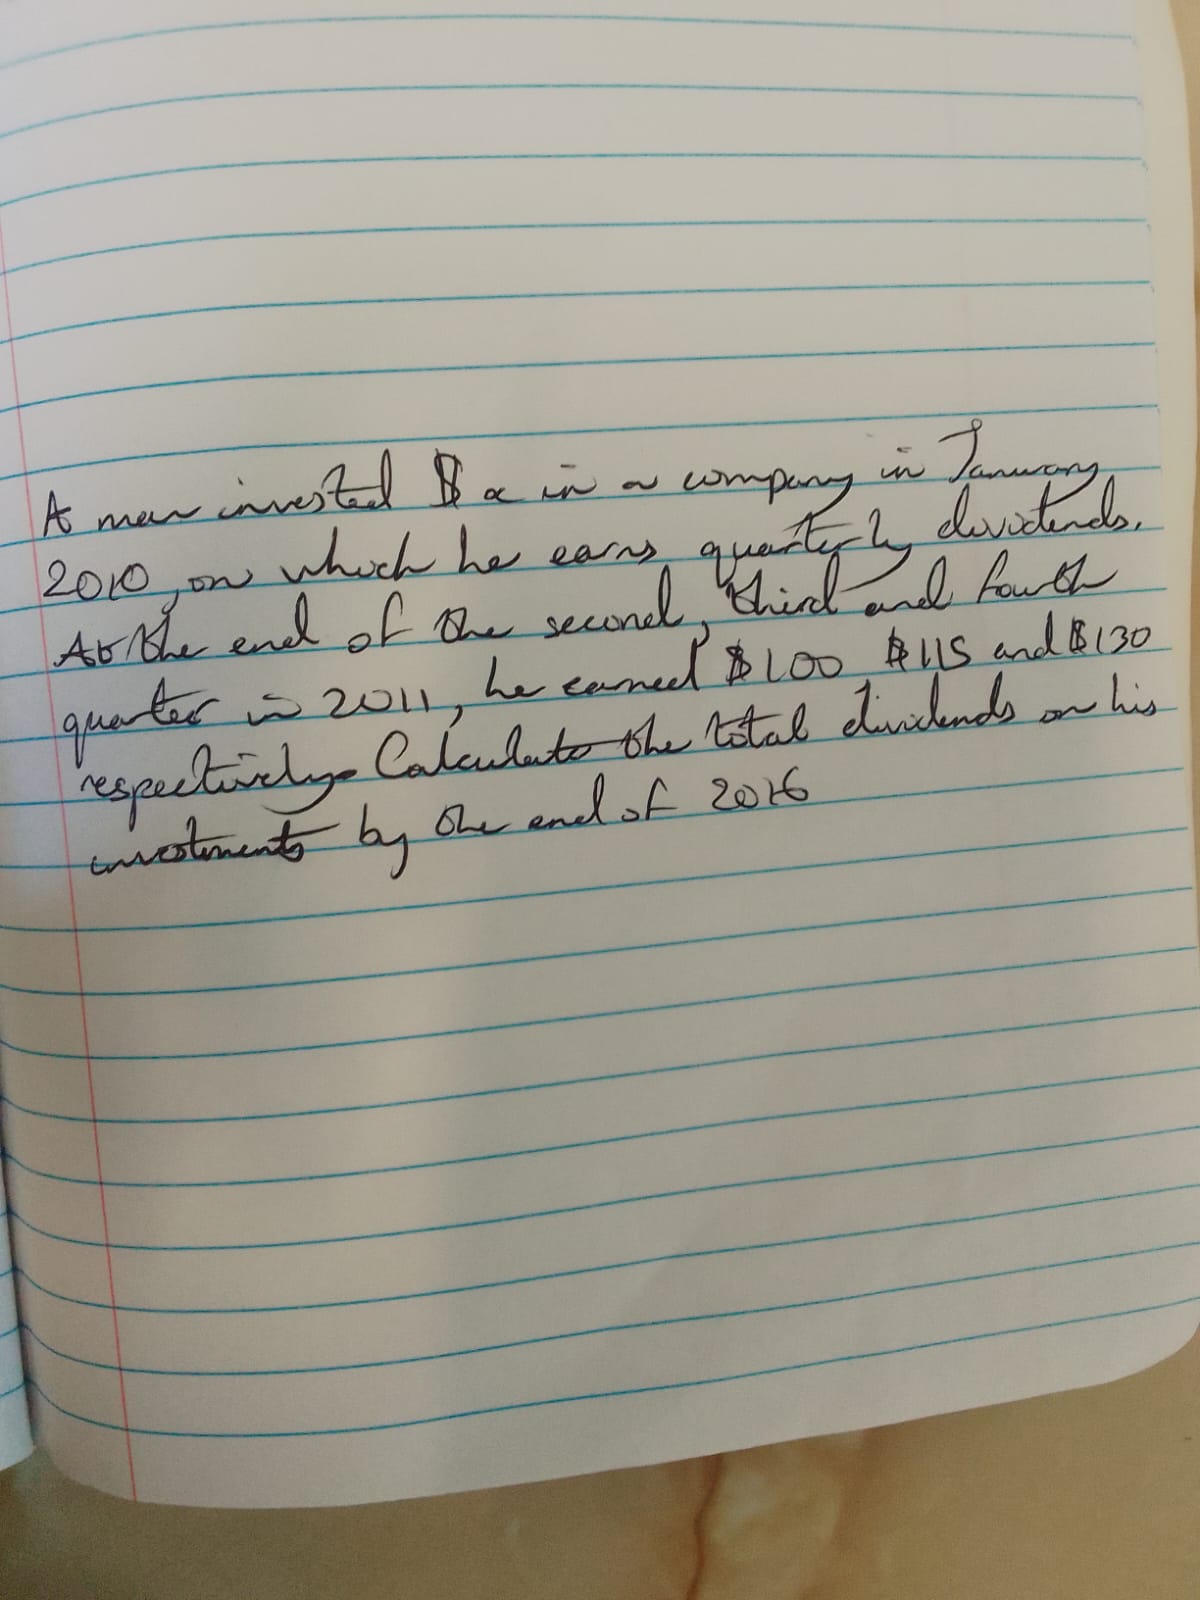 A man invested $ x in a company in January
2010, on which he earns quarterly dividends.
At the end of the second, third and fourth
quarter in 2011, he earned $100 $115 and $130
respectively. Calculate the total dividends on his
investments by the end of 2016